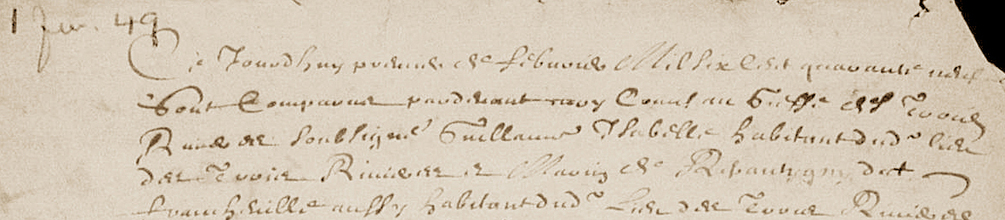 1 fev. 49
Ce Jourdhuy premier de febvrier Mil six Cent quarante neuf
Sont Comparus pardevant moy Commis au Greffe des Trois
Rivieres Soubsigné Guillaume Isabelle habitant dud. lieu
des Trois Rivieres et Marin de Repantigny dit
francheville aussy habitant dud. Lieu des Trois Rivieres